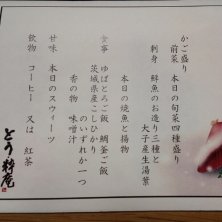 かご盛り
前菜 本日の旬菜四種盛り
刺身 鮮魚のお造り三種と
大子産生湯葉
本日の焼魚と揚物
食事 ゆばとろご飯 鯛釜ご飯
茨城県産こしひかり
のいずれか一つ
香の物 味噌汁
甘味 本日のスウィーツ
飲物 コーヒー 又は 紅茶
とう粋庵